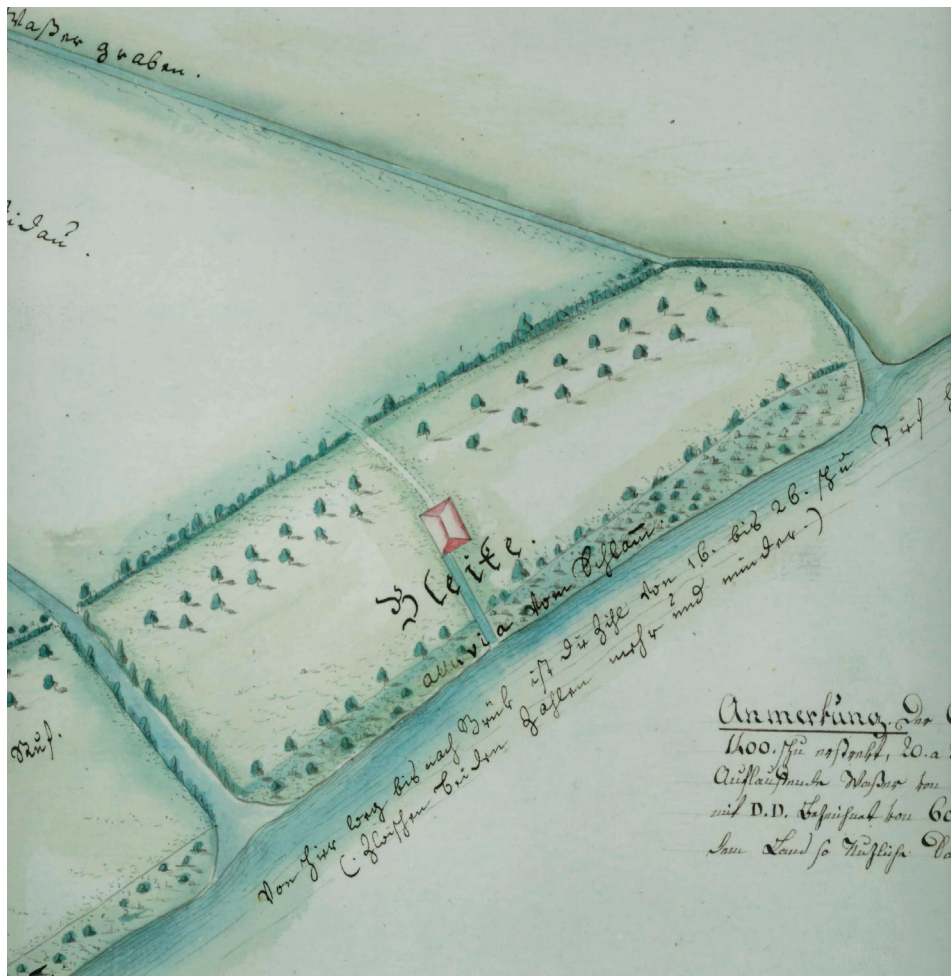 Waßer graben.
idau.
Bleike.
alluvia vom Schlam̅.
Von hier weg bis nach Brük ist die Zihl von 16. bis 26. shu tief
(: Zwischen beiden Zahlen mehr und minder.)
Anmerkung. Der
1400. shu erstrekt, 20. a
Auflaufende Waßer von
mit D.D. Bezeichnet von 60
dem Land so Nuzliche